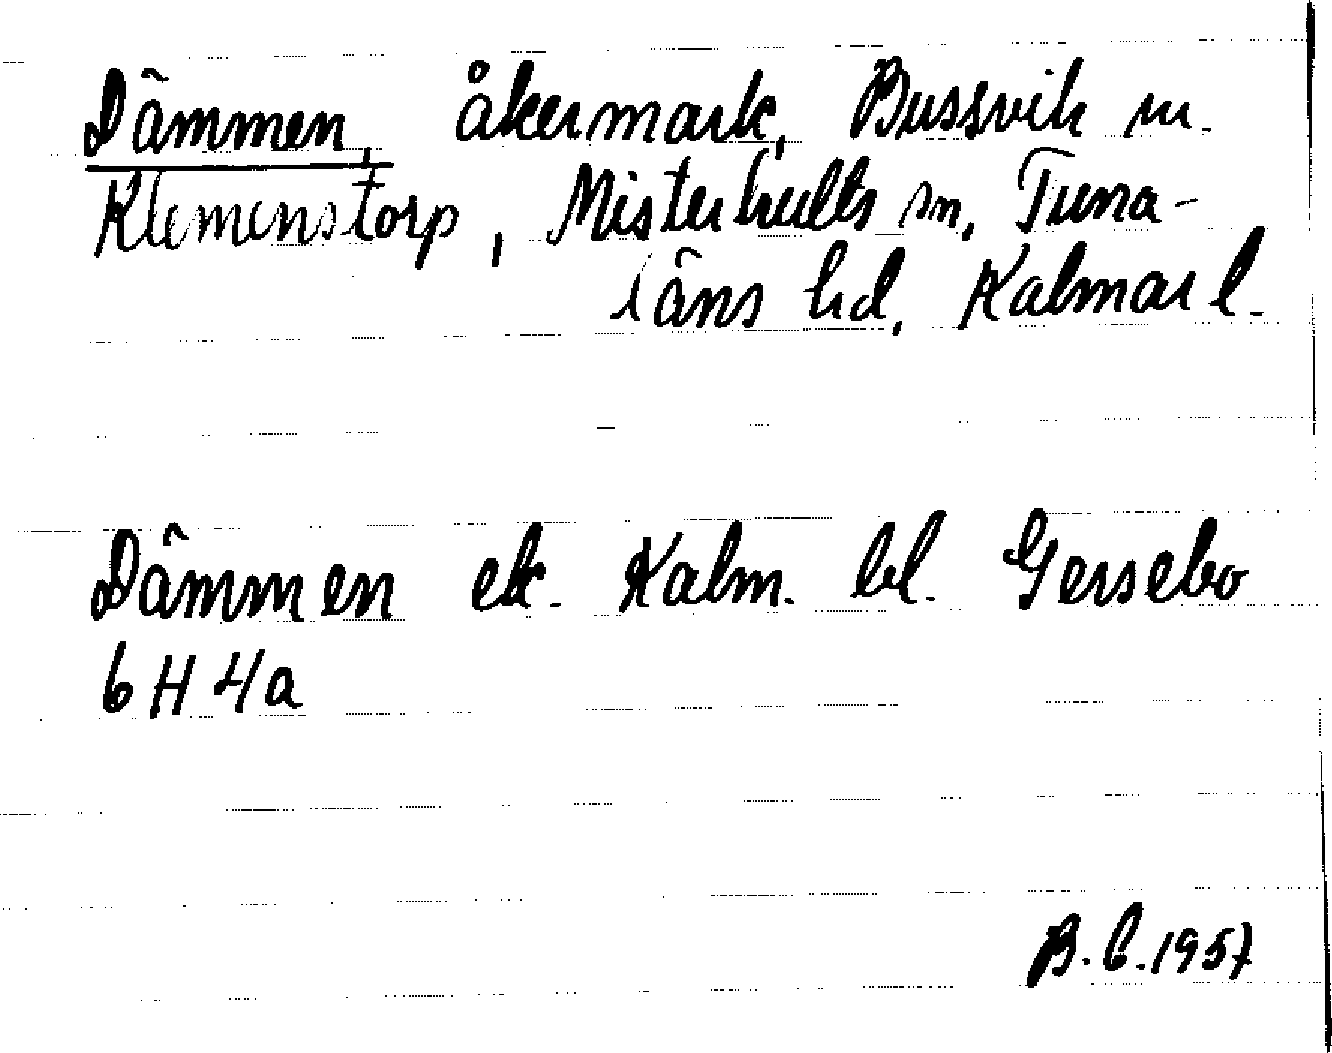 Dämmen, åkermark, Bussvik m.
Klemenstorp, Misterhults sn, Tuna-
läns hd, Kalmar l.
Dämmen ek. Kalm. bl. Gersebo
6 H 4a
B.C. 1957